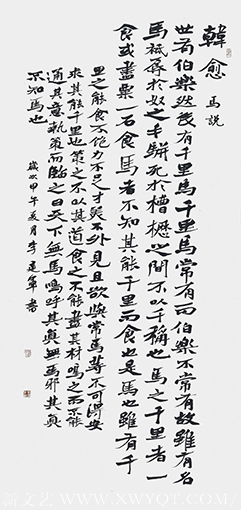 韓愈 馬説
世有伯樂然後有千里馬千里馬常有而伯樂不常有故雖有名
馬祗辱於奴之手駢死於槽櫪之間不以千稱也馬之千里者一
食或盡粟一石食馬者不知其能千里而食也是馬也雖有千
里之能食不飽力不足才美不外見且欲與常馬等不可得安
求其能千里也策之不以其道食之不能盡其材鳴之而不能
通其意執策而臨之曰天下無馬嗚呼其真無馬邪其真
不知馬也
歲次甲午夏月李軍書